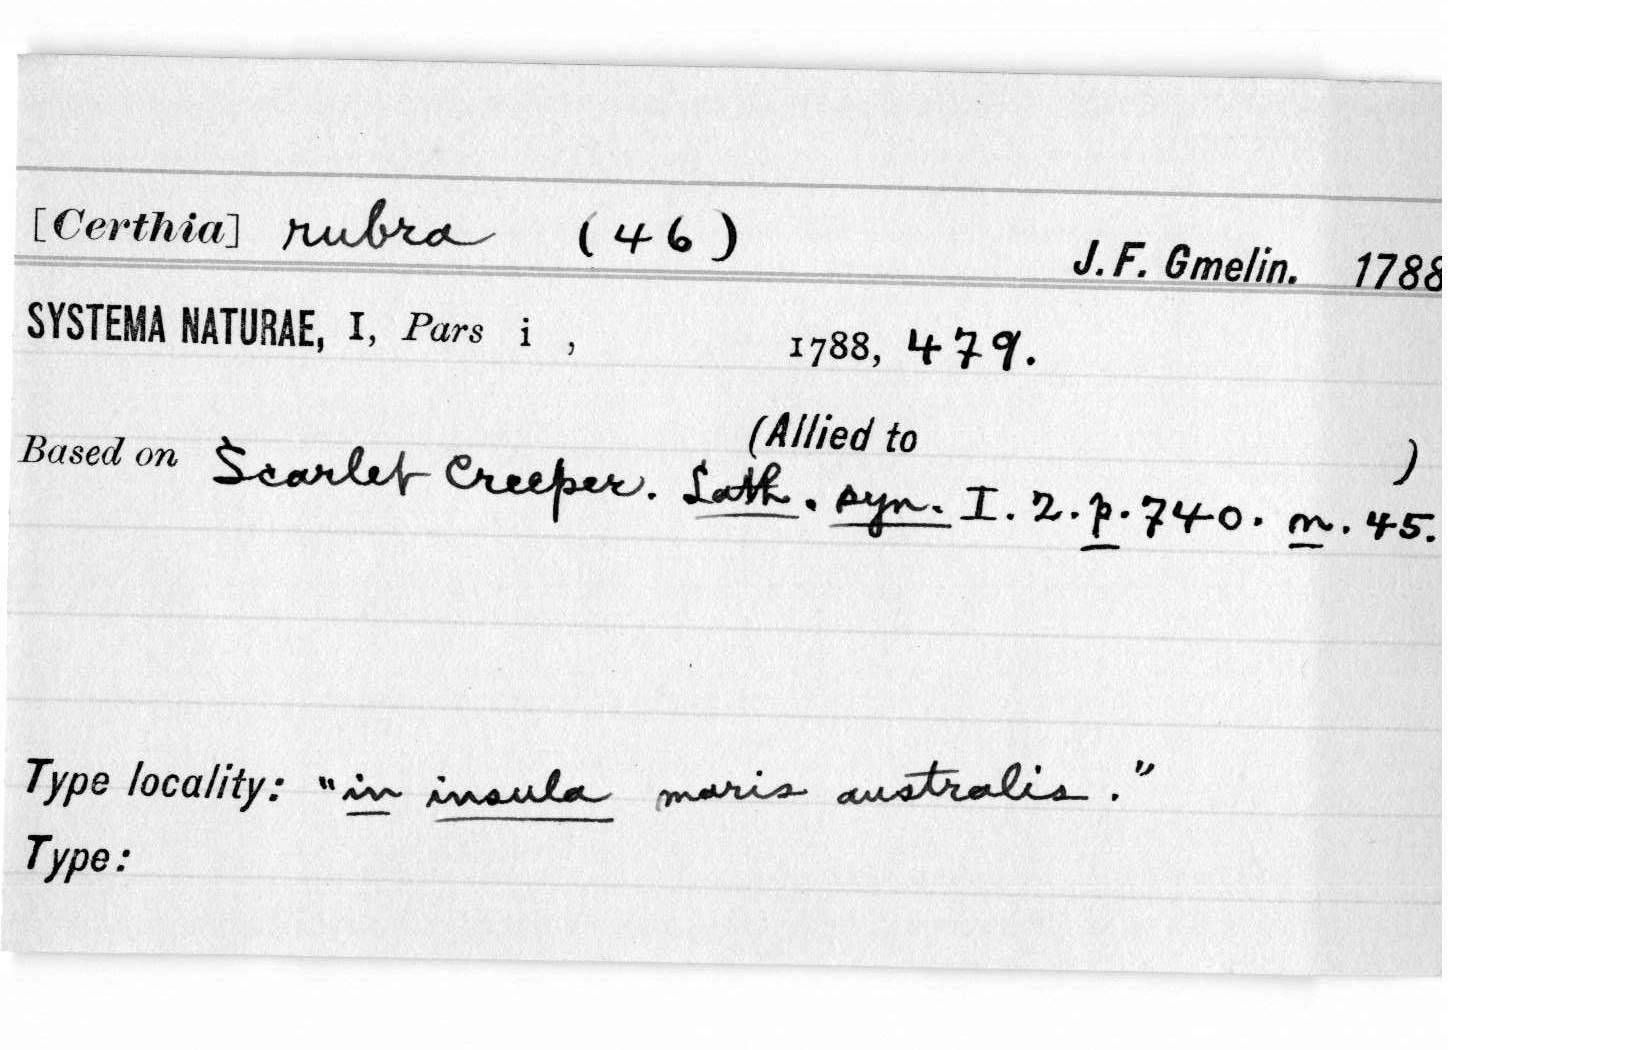 [Certhia] rubra (46)
J. F. Gmelin. 1788
SYSTEMA NATURAE, I, Pars i , 1788, 479.
(Allied to )
Based on Scarlet Creeper. Lath. syn. I. 2. p. 740. n. 45.
Type locality: "in insula maris australis."
Type: